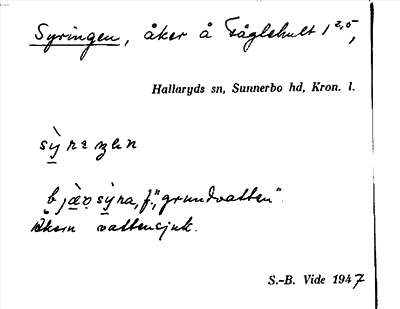 Syringen, åker å Fåglehult 1²,⁵,
Hallaryds sn, Sunnerbo hd, Kron. l.
"grundvatten".
Åkern vattensjuk.
S.-B. Vide 1947